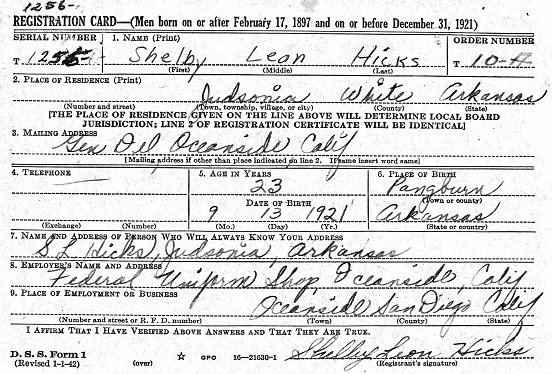 1256-
REGISTRATION CARD—(Men born on or after February 17, 1897 and on or before December 31, 1921)
SERIAL NUMBER 1. NAME (Print) ORDER NUMBER
T 1256 Shelby Leon Hicks T 10-
(First) (Middle) (Last)
2. PLACE OF RESIDENCE (Print)
Judsonia White Arkansas
(Number and street) (Town, township, village, or city) (County) (State)
[THE PLACE OF RESIDENCE GIVEN ON THE LINE ABOVE WILL DETERMINE LOCAL BOARD
JURISDICTION; LINE 2 OF REGISTRATION CERTIFICATE WILL BE IDENTICAL]
3. MAILING ADDRESS
Gen Del Oceanside, Calif
[Mailing address if other than place indicated on line 2. If same insert word same]
4. TELEPHONE 5. AGE IN YEARS 6. PLACE OF BIRTH
23 Pangburn
DATE OF BIRTH (Town or county)
9 13 1921 Arkansas
(Exchange) (Number) (Mo.) (Day) (Yr.) (State or county)
7. NAME AND ADDRESS OF PERSON WHO WILL ALWAYS KNOW YOUR ADDRESS
S L Hicks, Judsonia, Arkansas
8. EMPLOYER'S NAME AND ADDRESS
Federal Uniform Shop, Oceanside, Calif
9. PLACE OF EMPLOYMENT OR BUSINESS
Oceanside San Diego Calif
(Number and street or R. F. D. number) (Town) (County) (State)
I AFFIRM THAT I HAVE VERIFIED ABOVE ANSWERS AND THAT THEY ARE TRUE.
D. S. S. Form 1
(Revised 1-1-42) (over) ☆ GPO 16—21630-1 Shelby Leon Hicks
(Registrant's signature)